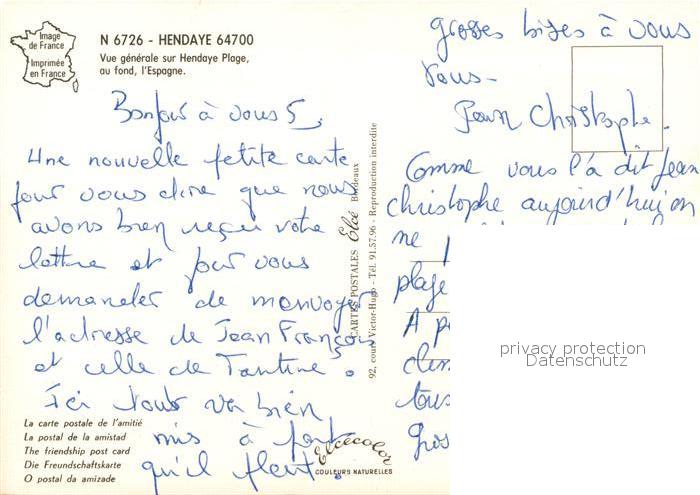 Image
de France
Imprimée
en France
N 6726 - HENDAYE 64700
Vue générale sur Hendaye Plage,
au fond, l'Espagne.
Bonjour à vous 5,
Une nouvelle petite carte
pour vous dire que nous
avons bien reçu votre
lettre et pour vous
demander de m'envoyer
l'adresse de Jean François
et celle de Tantine.
Ici tout va bien
mis à part
qu'il pleut.
La carte postale de l'amitié
La postal de la amistad
The friendship post card
Die Freundschaftskarte
O postal da amizade
Elcécolor
COULEURS NATURELLES
CARTES POSTALES Elcé Bordeaux
92, cours Victor-Hugo - Tél. 91.57.96 - Reproduction interdite
grosses bises à vous
tous-
Jean Christophe.
Comme vous l'a dit Jean
christophe aujourd'hui on
ne
plage
A
tous
gros
privacy protection
Datenschutz